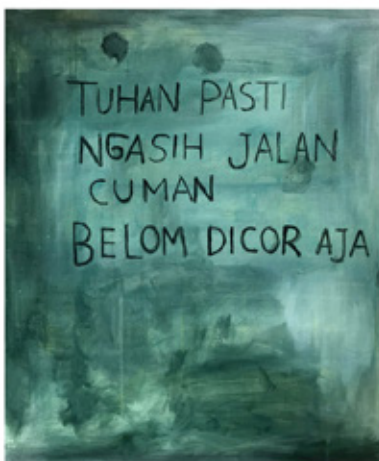 TUHAN PASTI
NGASIH JALAN
CUMAN
BELOM DICOR AJA